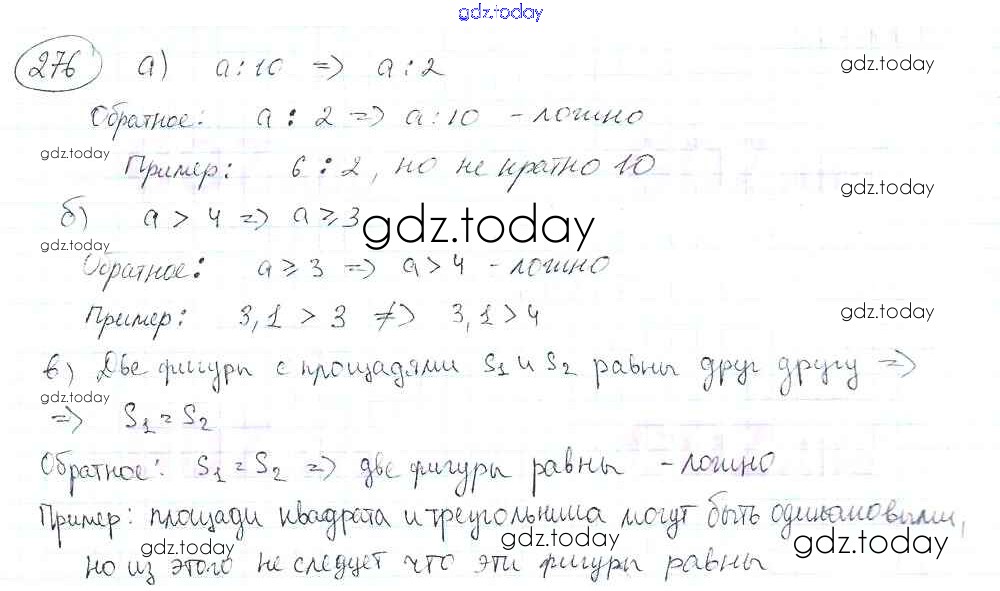 gdz.today
276 а) a ⋮ 10 => a ⋮ 2 gdz.today
Обратное: a ⋮ 2 => a ⋮ 10 - ложно
gdz.today
Пример: 6 ⋮ 2, но не кратно 10
gdz.today
б) a > 4 => a ≥ 3 gdz.today
gdz.today
Обратное: a ≥ 3 => a > 4 - ложно
Пример: 3,1 > 3 ≠> 3,1 > 4 gdz.today
в) Две фигуры с площадями S₁ и S₂ равны друг другу =>
gdz.today
=> S₁ = S₂
Обратное: S₁ = S₂ => две фигуры равны - ложно
Пример: площади квадрата и треугольника могут быть одинаковыми,
gdz.today gdz.today gdz.today
но из этого не следует что эти фигуры равны